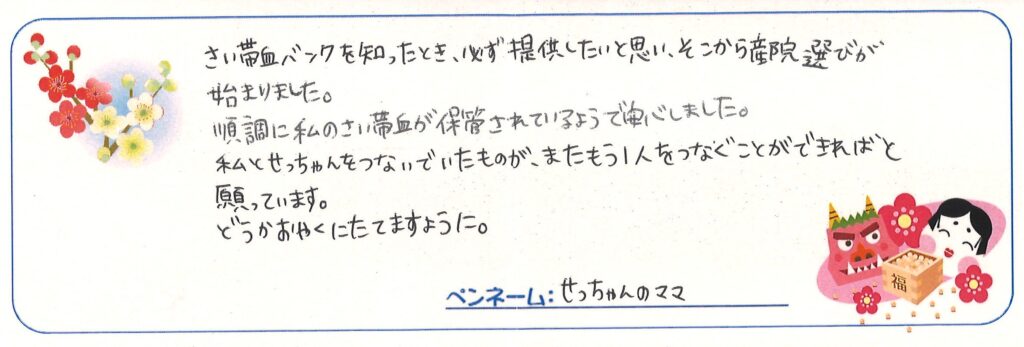 さい帯血バンクを知ったとき、必ず提供したいと思い、そこから産院選びが
始まりました。
順調に私のさい帯血が保管されているようで安心しました。
私とせっちゃんをつないでいたものが、またもう1人をつなぐことができればと
願っています。
どうかおやくにたてますように。
ペンネーム：せっちゃんのママ
福